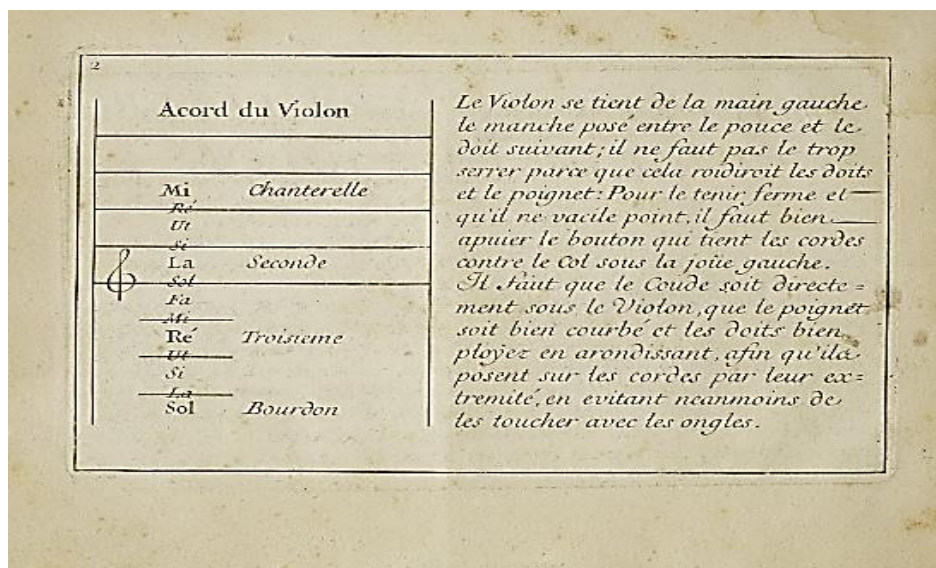 2
Acord du Violon
Mi Chanterelle
Ré
Ut
Si
La Seconde
Sol
Fa
Mi
Ré Troisieme
Ut
Si
La
Sol Bourdon
Le Violon se tient de la main gauche
le manche posé entre le pouce et le
doit suivant; il ne faut pas le trop
serrer parce que cela roidiroit les doits
et le poignet: Pour le tenir ferme et
qu'il ne vacile point, il faut bien
apuier le bouton qui tient les cordes
contre le Col sous la joüe gauche.
Il faut que le Coude soit directe=
ment sous le Violon, que le poignet
soit bien courbé et les doits bien
ployez en arondissant, afin qu'ils
posent sur les cordes par leur ex=
tremité, en evitant neanmoins de
les toucher avec les ongles.